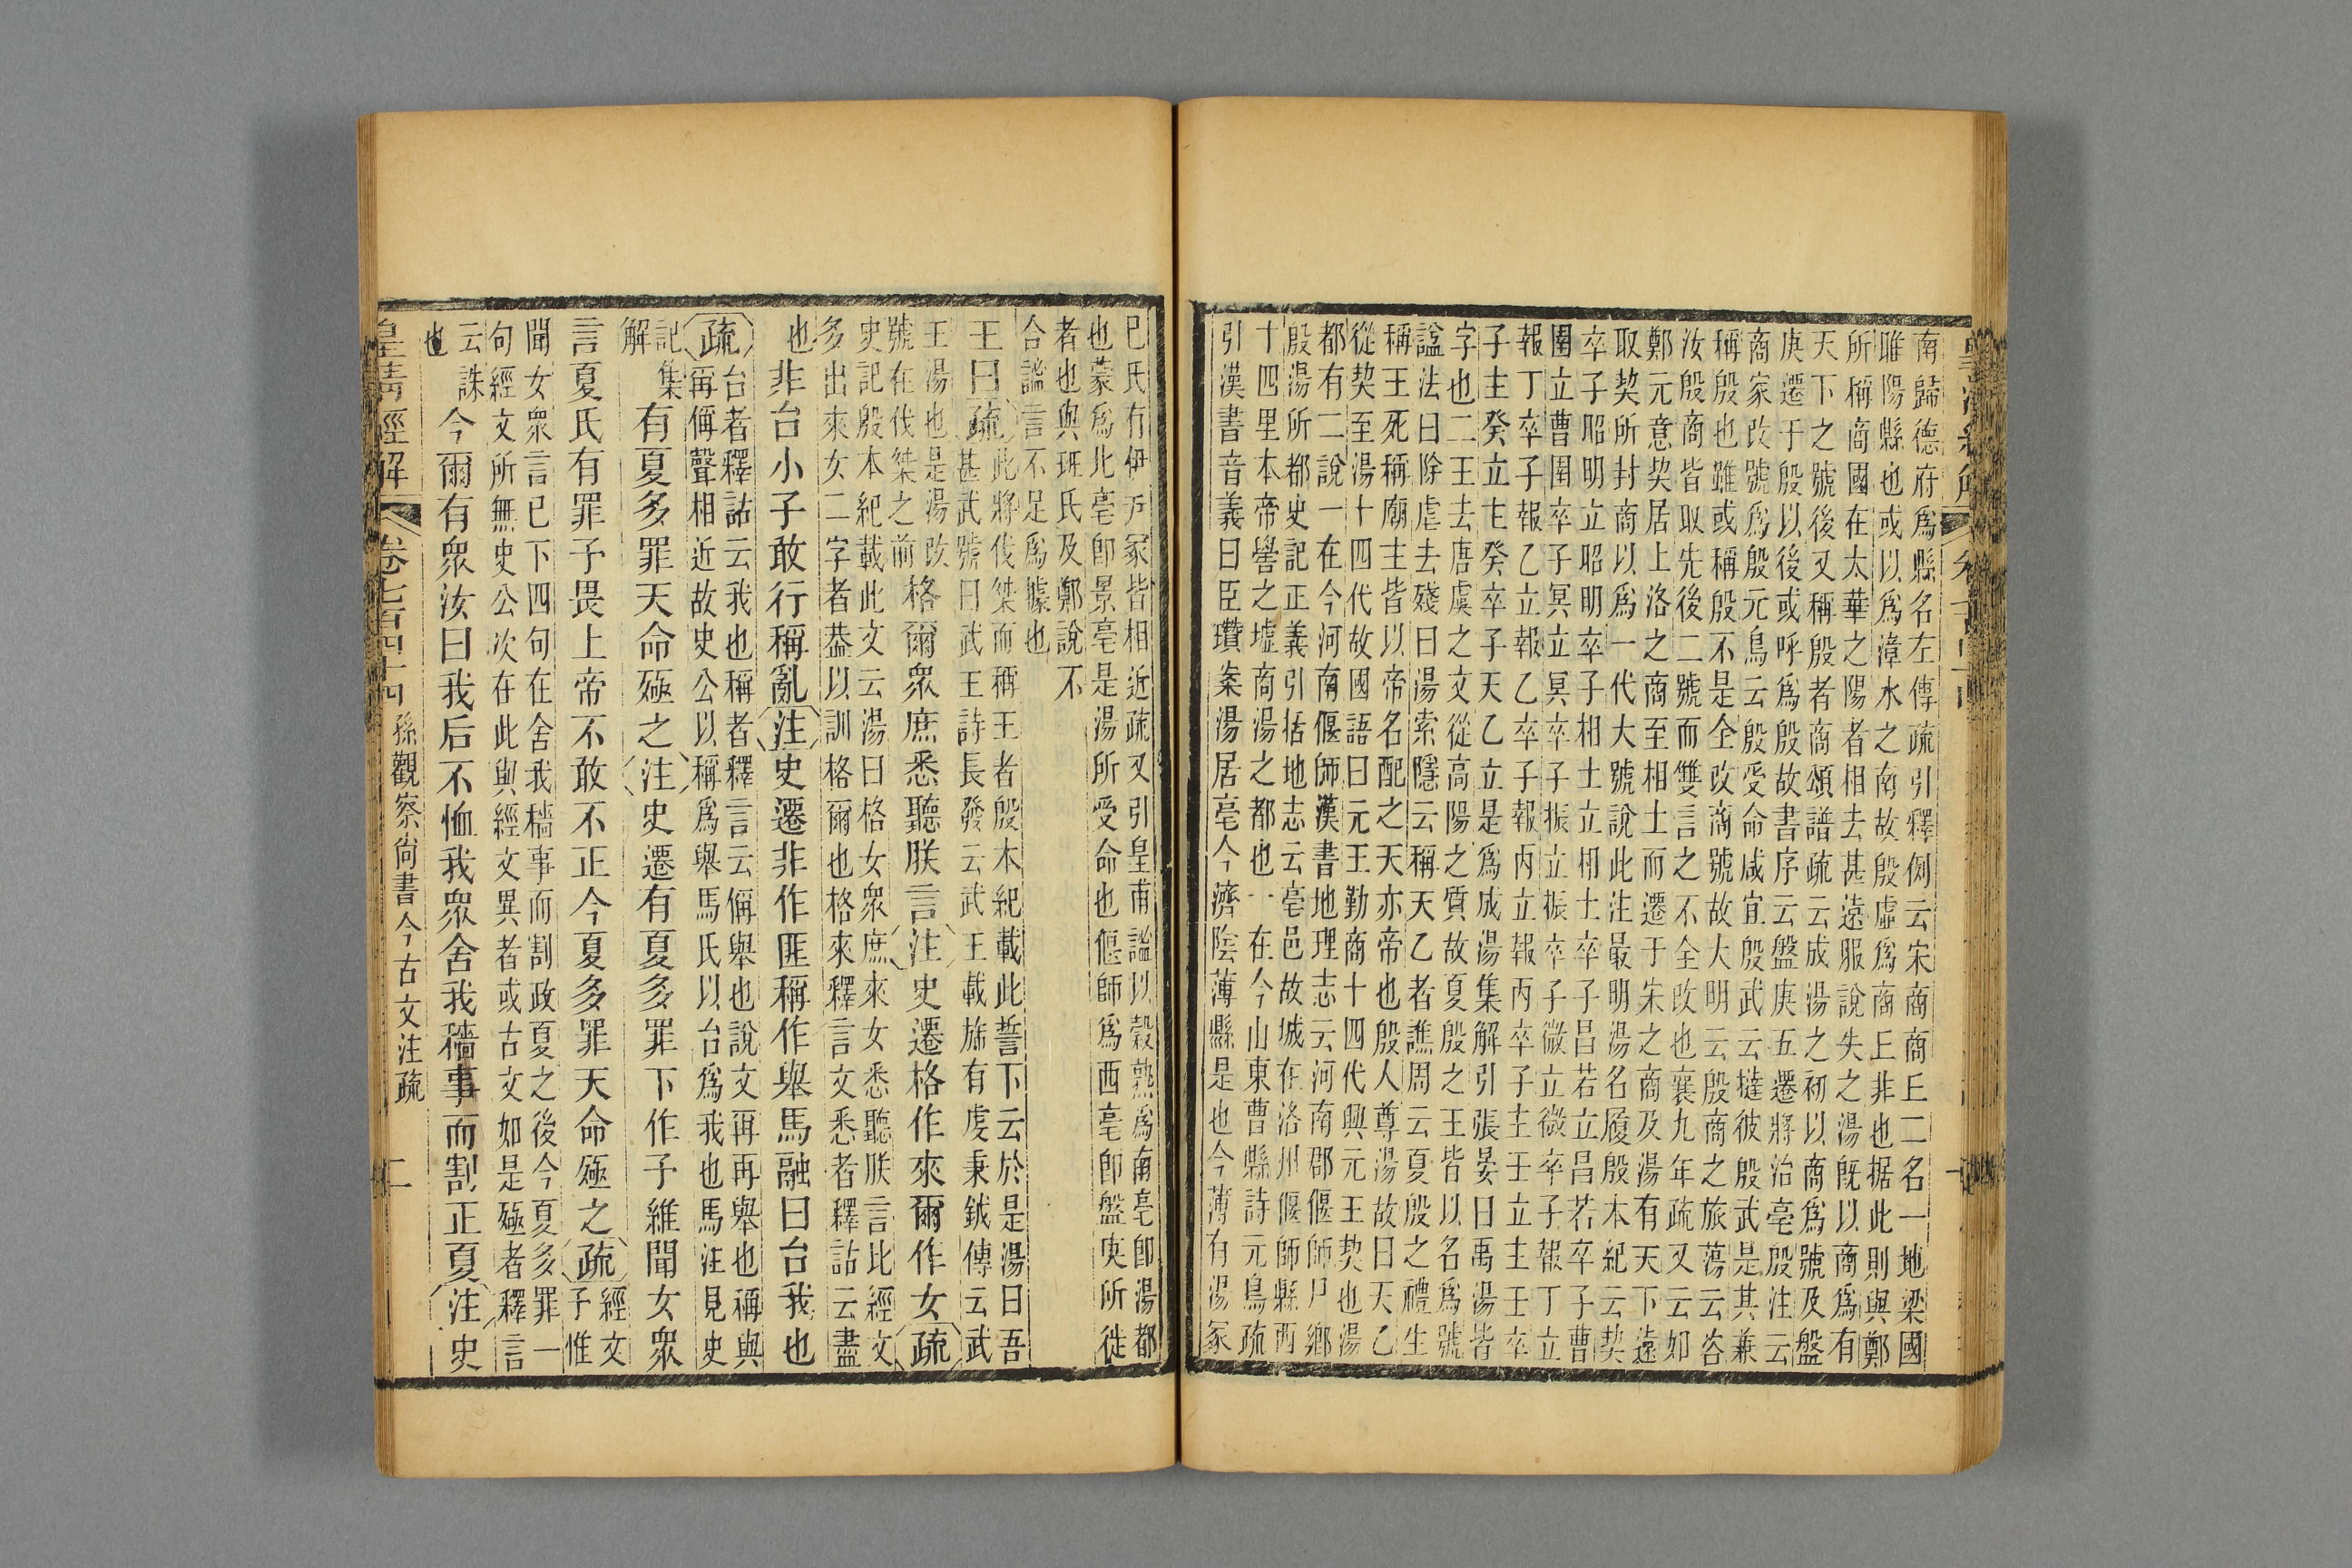 南歸德府爲縣名左傳疏引釋例云宋商商丘二名一地梁國
睢陽縣也或以爲漳水之南故殷虛爲商丘非也据此則與鄭
所稱商國在太華之陽者相去甚遠服說失之湯旣以商爲有
天下之號後又稱殷者商頌譜疏云成湯之初以商爲號及盤
庚遷于殷以後或呼爲殷故書序云盤庚五遷將治亳殷注云
商家改號爲殷元鳥云殷受命咸宜殷武云撻彼殷武是其兼
稱殷也雖或稱殷不是全改商號故大明云殷商之旅蕩云咨
汝殷商皆取先後二號而雙言之不全改也襄九年疏又云如
鄭元意契居上洛之商至相土而遷于宋之商及湯有天下遠
取契所封商以爲一代大號說此注最明湯名履殷本紀云契
卒子昭明立昭明卒子相土立相土卒子昌若立昌若卒子曹
圉立曹圉卒子冥立冥卒子振立振卒子微立微卒子報丁立
報丁卒子報乙立報乙卒子報丙立報丙卒子主壬立主壬卒
子主癸立主癸卒子天乙立是爲成湯集解引張晏曰禹湯皆
字也二王去唐虞之文從高陽之質故夏殷之王皆以名爲號
諡法曰除虐去殘曰湯索隱云稱天乙者譙周云夏殷之禮生
稱王死稱廟主皆以帝名配之天亦帝也殷人尊湯故曰天乙
從契至湯十四代故國語曰元王勤商十四代興元王契也湯
都有二說一在今河南偃師漢書地理志云河南郡偃師尸鄉
殷湯所都史記正義引括地志云亳邑故城在洛州偃師縣西
十四里本帝嚳之墟商湯之都也一在今山東曹縣詩元鳥疏
引漢書音義曰臣瓚案湯居亳今濟陰薄縣是也今薄有湯冢
已氏有伊尹冢皆相近疏又引皇甫謐以穀熟爲南亳卽湯都
也蒙爲北亳卽景亳是湯所受命也偃師爲西亳卽盤庚所徙
者也與班氏及鄭說不
合謐言不足爲據也
王曰疏此將伐桀而稱王者殷本紀載此誓下云於是湯曰吾
甚武號曰武王詩長發云武王載旆有虔秉鉞傳云武
王湯也是湯改
號在伐桀之前格爾眾庶悉聽朕言注史遷格作來爾作女疏
史記殷本紀載此文云湯曰格女眾庶來女悉聽朕言此經文
多出來女二字者葢以訓格爾也格來釋言文悉者釋詁云盡
也非台小子敢行稱亂注史遷非作匪稱作舉馬融曰台我也
疏台者釋詁云我也稱者釋言云偁舉也說文再再舉也稱與
爯偁聲相近故史公以稱爲舉馬氏以台爲我也馬注見史
記集
解有夏多罪天命殛之注史遷有夏多罪下作予維聞女眾
言夏氏有罪予畏上帝不敢不正今夏多罪天命殛之疏經文
予惟
聞女眾言已下四句在舍我穡事而割政夏之後今夏多罪一
句經文所無史公次在此與經文異者或古文如是殛者釋言
云誅
也今爾有眾汝曰我后不恤我眾舍我穡事而割正夏注史
皇清經解 卷七百四十四 孫觀察尙書今古文注疏 二